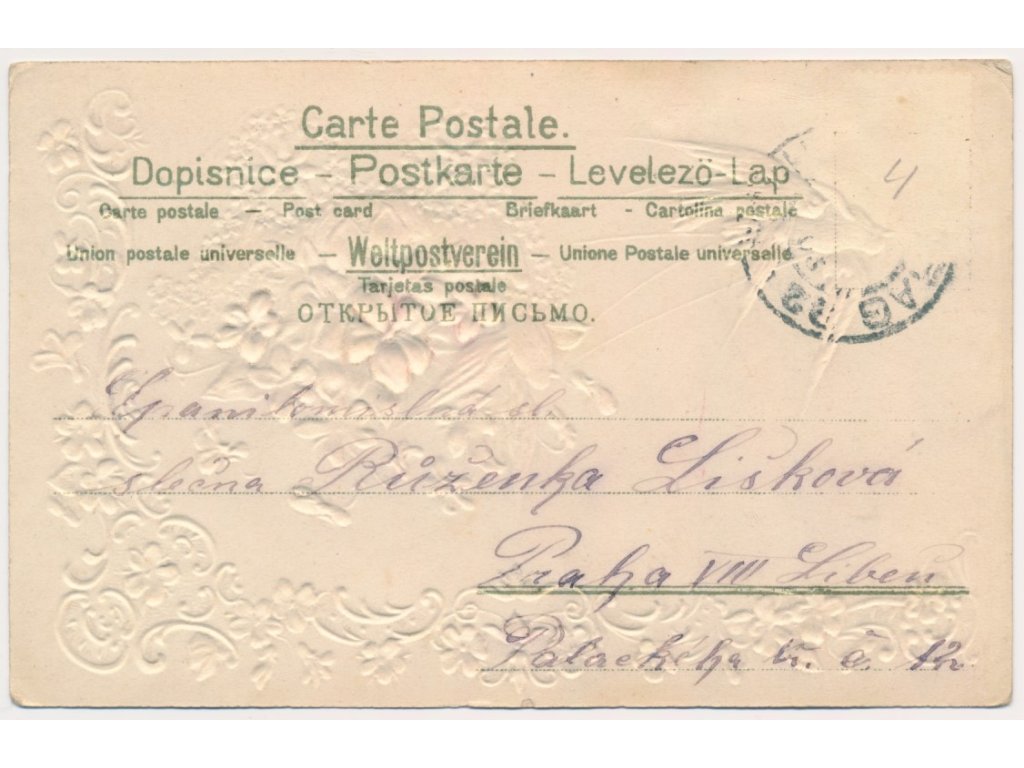 Carte Postale.
Dopisnice – Postkarte – Levelezö-Lap
Carte postale — Post card Briefkaart - Cartolina postale
Union postale universelle — Weltpostverein — Unione Postale universelle
Tarjetas postale
ОТКРЫТОЕ ПИСЬМО.
4
slečna Růženka Lišková
Praha VIII Libeň
Palackého tř. č. 12